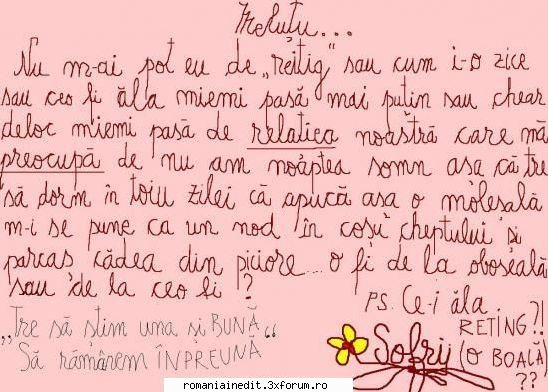 Meluțu...
Nu m-ai pot eu de „reitig" sau cum i-o zice
sau ceo fi ăla miemi pasă mai puțin sau chear
deloc miemi pasă de relatiea noastră care mă
preocupă de nu am noaptea somn asa că tre
să dorm în toiu zilei că apucă asa o moleșală
m-i se pune ca un nod în coșu' cheptului și
parcas cădea din piciore... o fi de la oboseală
sau de la ceo fi ?
„Tre să știm una și BUNĂ"
Să rămânem ÎNPREUNĂ
PS. Ce-i ăla
RETING?!
Sofrij (o BOALĂ)
??
romaniainedit.3xforum.ro